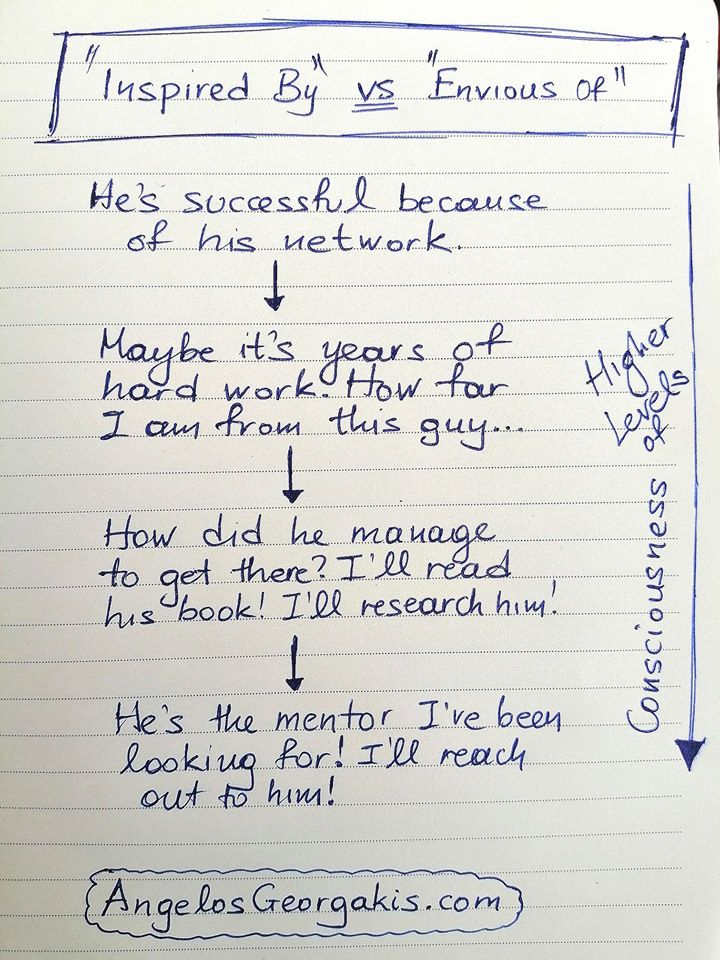 "Inspired By" vs "Envious Of"
He's successful because
of his network.
Maybe it's years of
hard work. How far
I am from this guy...
How did he manage
to get there? I'll read
his book! I'll research him!
He's the mentor I've been
looking for! I'll reach
out to him!
Higher
Levels
of
Consciousness
AngelosGeorgakis.com